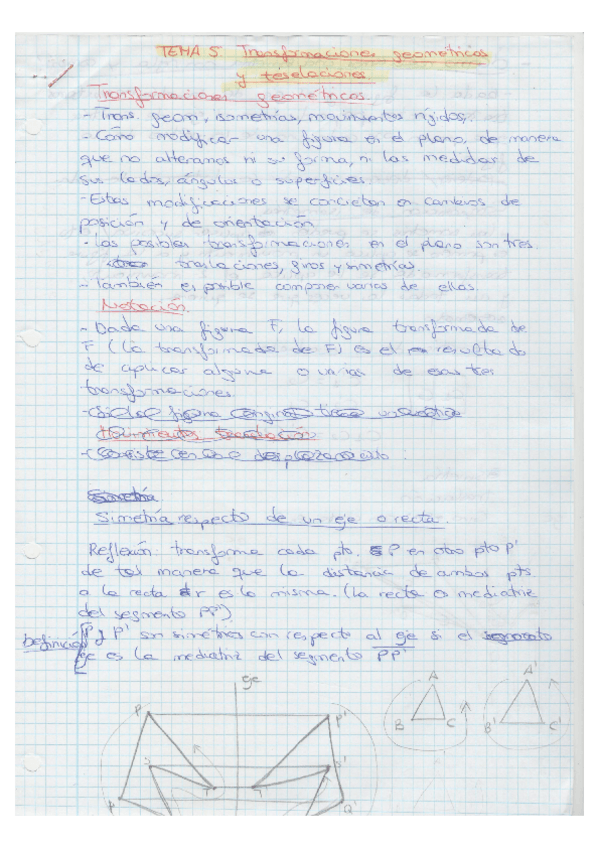 TEMA 5. Transformaciones geométricas
y teselaciones.
Transformaciones geométricas.
- Trans. geom, isometrías, movimientos rígidos.
- Cómo modificar una figura en el plano, de manera
que no alteramos ni su forma, ni las medidas de
sus lados, ángulos o superficies.
- Estas modificaciones se concretan en cambios de
posición y de orientación.
- Las posibles transformaciones en el plano son tres
traslaciones, giros y simetrías.
- También es posible componer varias de ellas.
Notación
- Dada una figura F, la figura transformada de
F (la transformada de F) es el resultado
de aplicar alguna o varias de esas tres
transformaciones.
Simetría
Simetría respecto de un eje o recta.
Reflexión: transforma cada pto. P en otro pto P'
de tal manera que la distancia de ambos pts
a la recta r es la misma. (La recta es mediatriz
del segmento PP')
Definición P y P' son simétricos con respecto al eje si el
eje es la mediatriz del segmento PP'
eje
A A'
B C B' C'
P P'
S S'
T T'
Q'